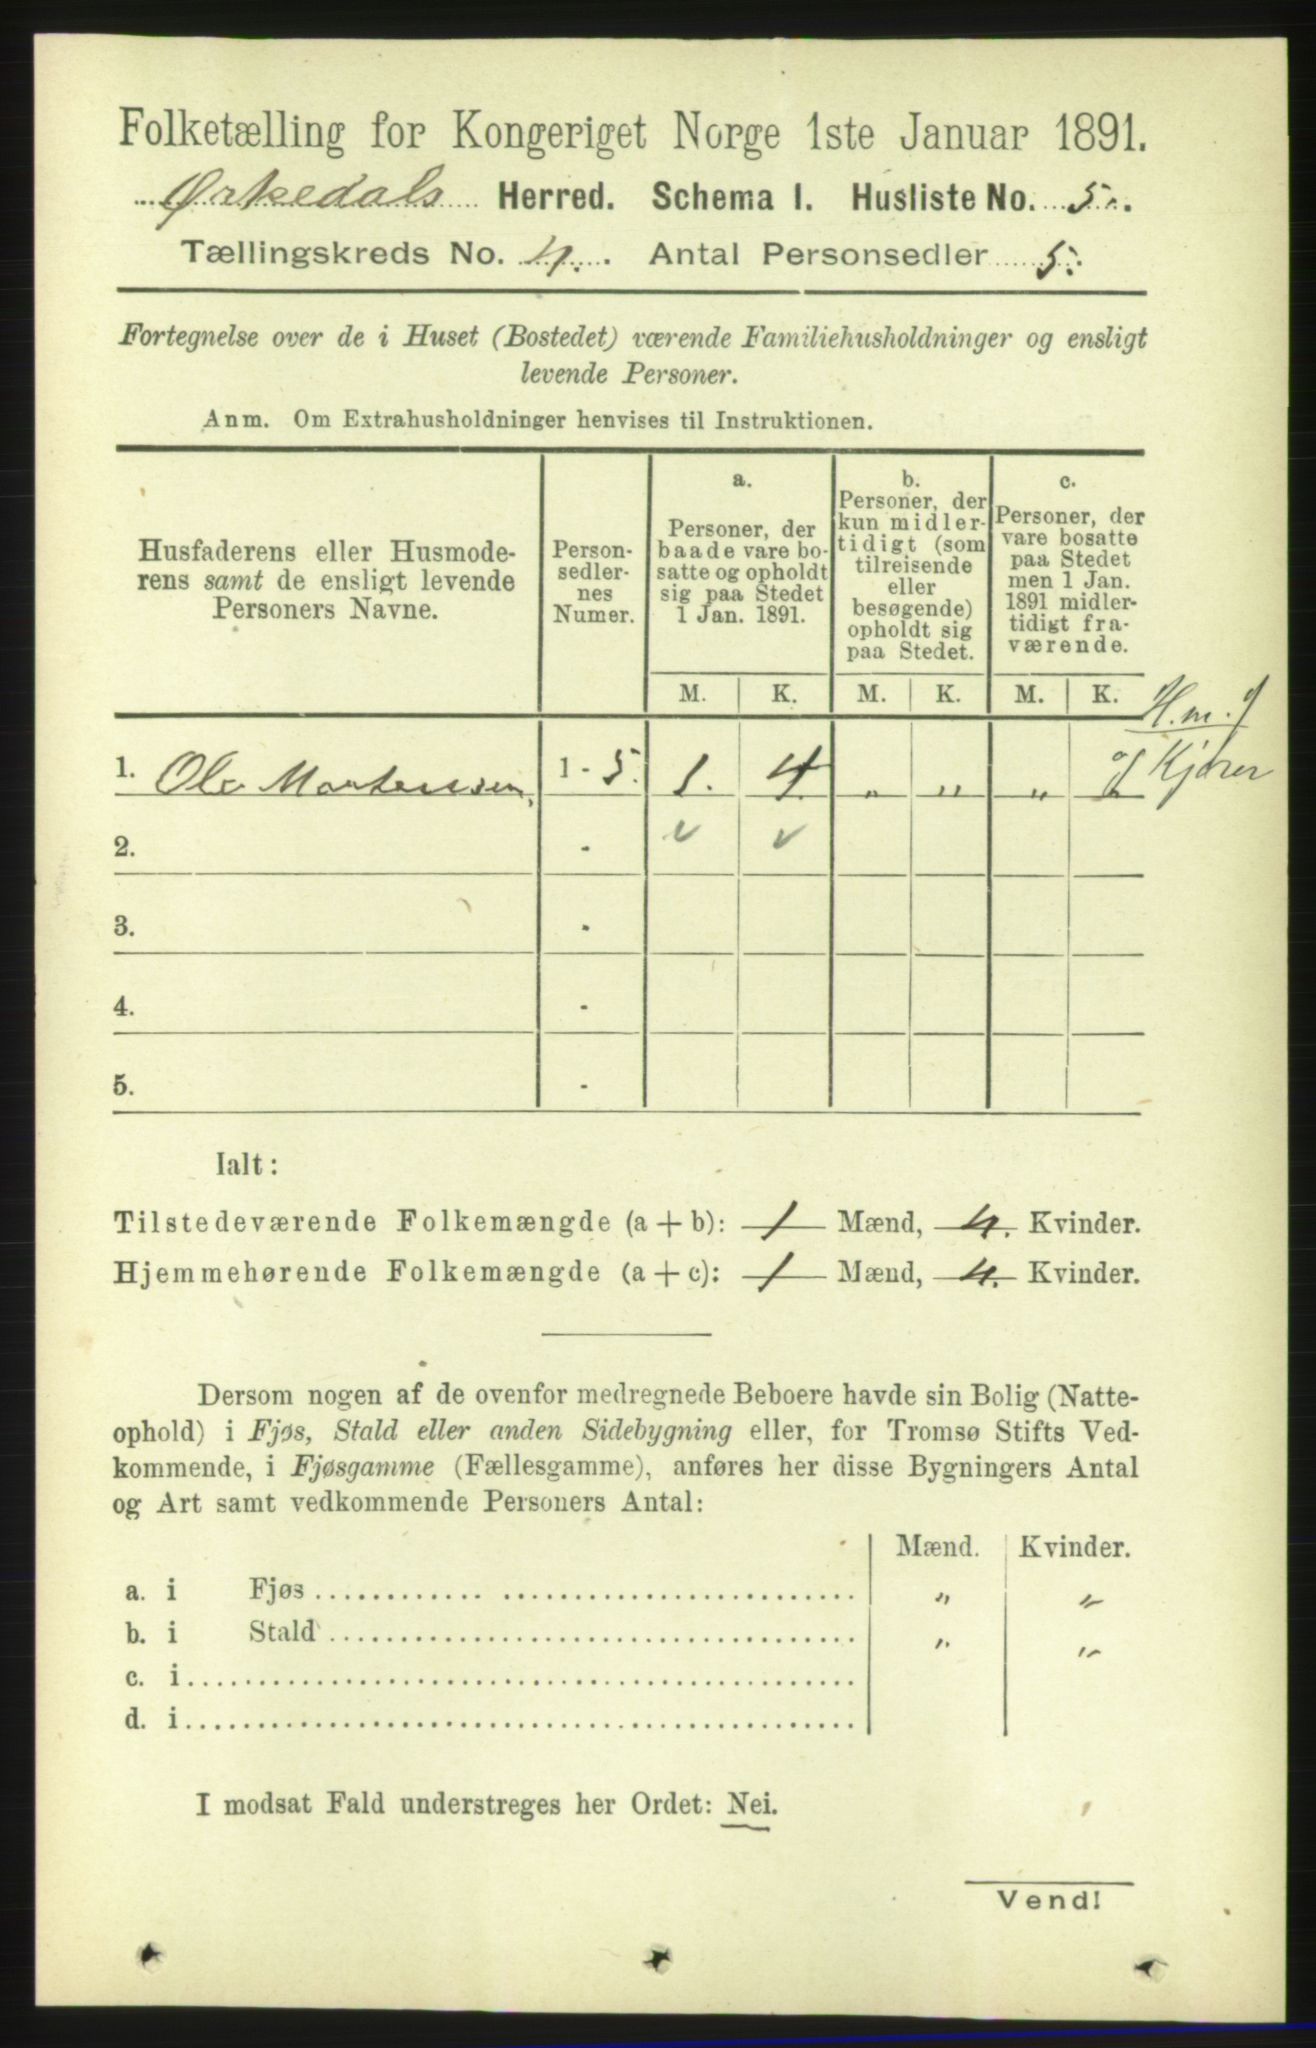 Folketælling for Kongeriget Norge 1ste Januar 1891.
Ørkedals Herred. Schema I. Husliste No. 5.
Tællingskreds No. 4. Antal Personsedler 5.
Fortegnelse over de i Huset (Bostedet) værende Familiehusholdninger og ensligt
levende Personer.
Anm. Om Extrahusholdninger henvises til Instruktionen.
Husfaderens eller Husmode-
rens samt de ensligt levende
Personers Navne.
Person-
sedler-
nes
Numer.
a.
Personer, der
baade vare bo-
satte og opholdt
sig paa Stedet
1 Jan. 1891.
b.
Personer, der
kun midler-
tidigt (som
tilreisende
eller
besøgende)
opholdt sig
paa Stedet.
c.
Personer, der
vare bosatte
paa Stedet
men 1 Jan.
1891 midler-
tidigt fra-
værende.
M. K. M. K. M. K.
H.m.J
1. Ole Mortensen, 1 - 5. 1. 4. " " " Kjører
2. - ✓ ✓
3. -
4. -
5. -
Ialt:
Tilstedeværende Folkemængde (a + b): 1 Mænd, 4. Kvinder.
Hjemmehørende Folkemængde (a + c): 1 Mænd, 4. Kvinder.
Dersom nogen af de ovenfor medregnede Beboere havde sin Bolig (Natte-
ophold) i Fjøs, Stald eller anden Sidebygning eller, for Tromsø Stifts Ved-
kommende, i Fjøsgamme (Fællesgamme), anføres her disse Bygningers Antal
og Art samt vedkommende Personers Antal:
Mænd. Kvinder.
a. i Fjøs " "
b. i Stald " "
c. i
d. i
I modsat Fald understreges her Ordet: Nei.
Vend!